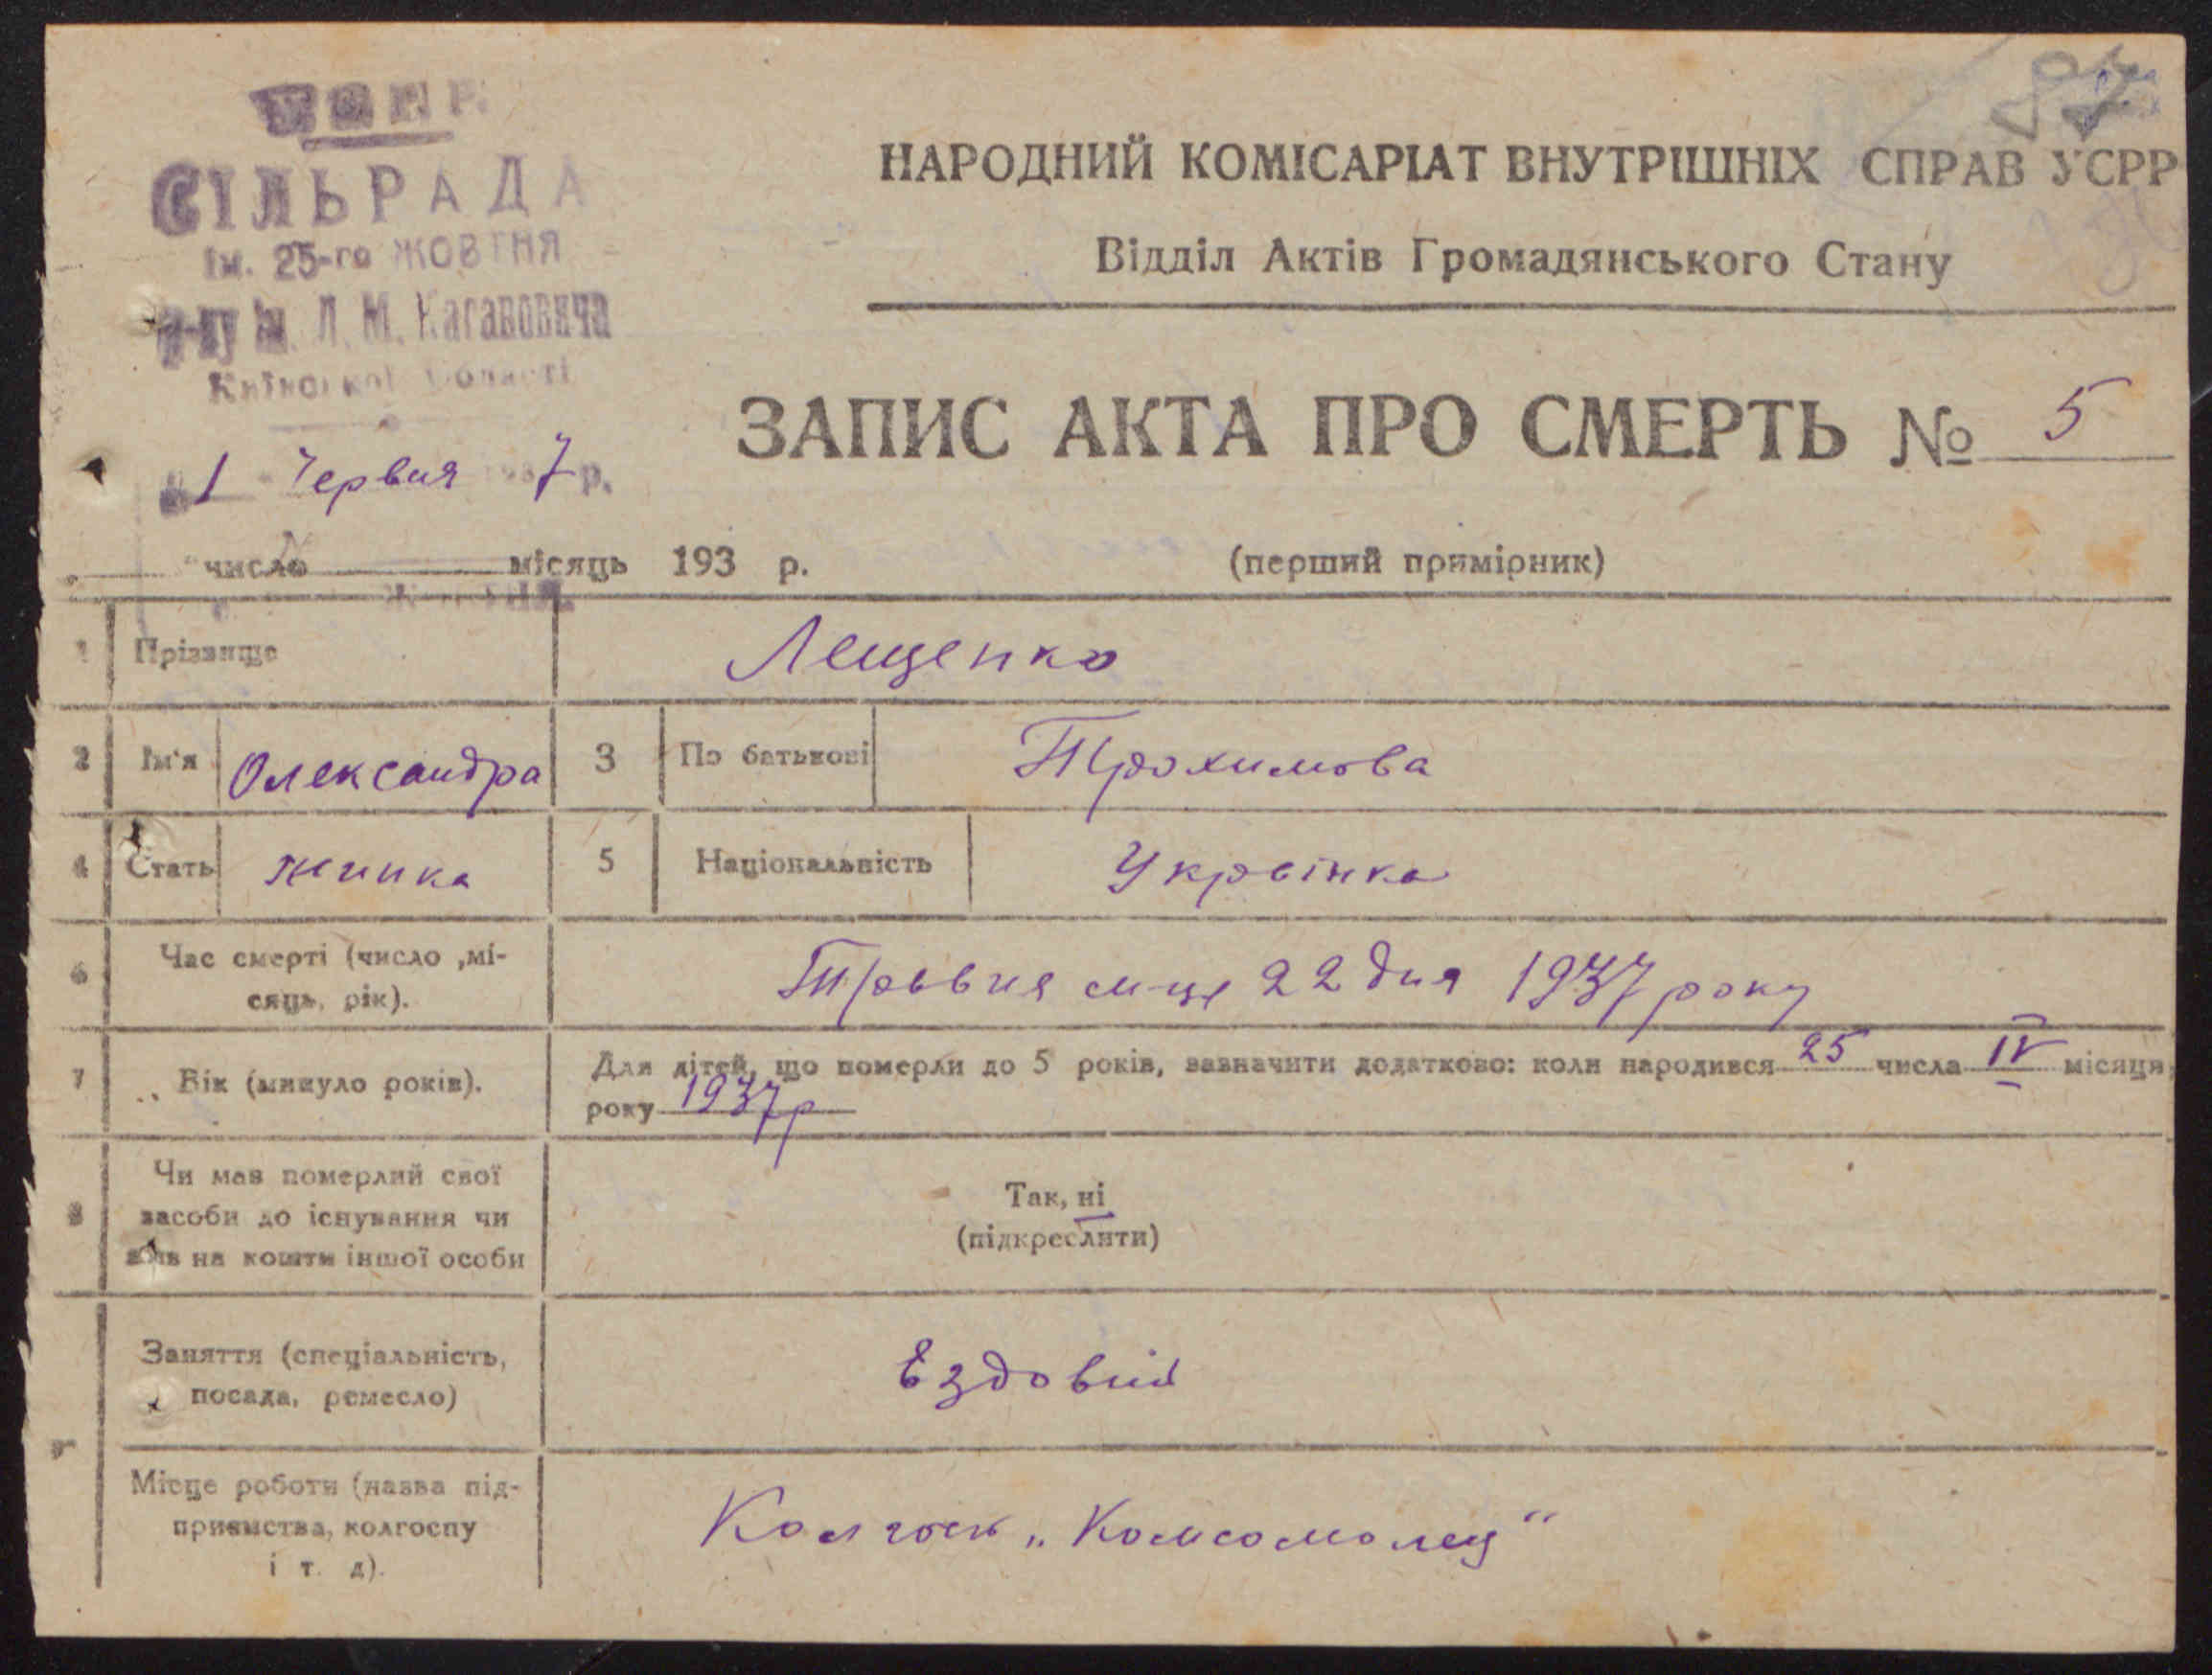 У.С.Р.Р.
СІЛЬРАДА
ім. 25-го ЖОВТНЯ
р-ну ім. Л. М. Кагановича
Київської Області
1 Червня 1937 р.
число місяць 193 р.
НАРОДНИЙ КОМІСАРІАТ ВНУТРІШНІХ СПРАВ УСРР
Відділ Актів Громадянського Стану
ЗАПИС АКТА ПРО СМЕРТЬ № 5
(перший примірник)
1 Прізвище Лещенко
2 Ім'я Олександра 3 По батькові Трохимова
4 Стать жинка 5 Національність Українка
6 Час смерті (число ,мі-
сяць, рік). Травня м-ця 22 дня 1937 року
7 Вік (минуло років). Для дітей, що померли до 5 років, зазначити додатково: коли народився 25 числа IV місяця
року 1937р
8 Чи мав померлий свої
засоби до існування чи
жив на кошти іншої особи
Так, ні
(підкреслити)
9 Заняття (спеціальність,
посада, ремесло) Ездовий
Місце роботи (назва під-
приємства, колгоспу
і т. д). Колгосп „Комсомолец"